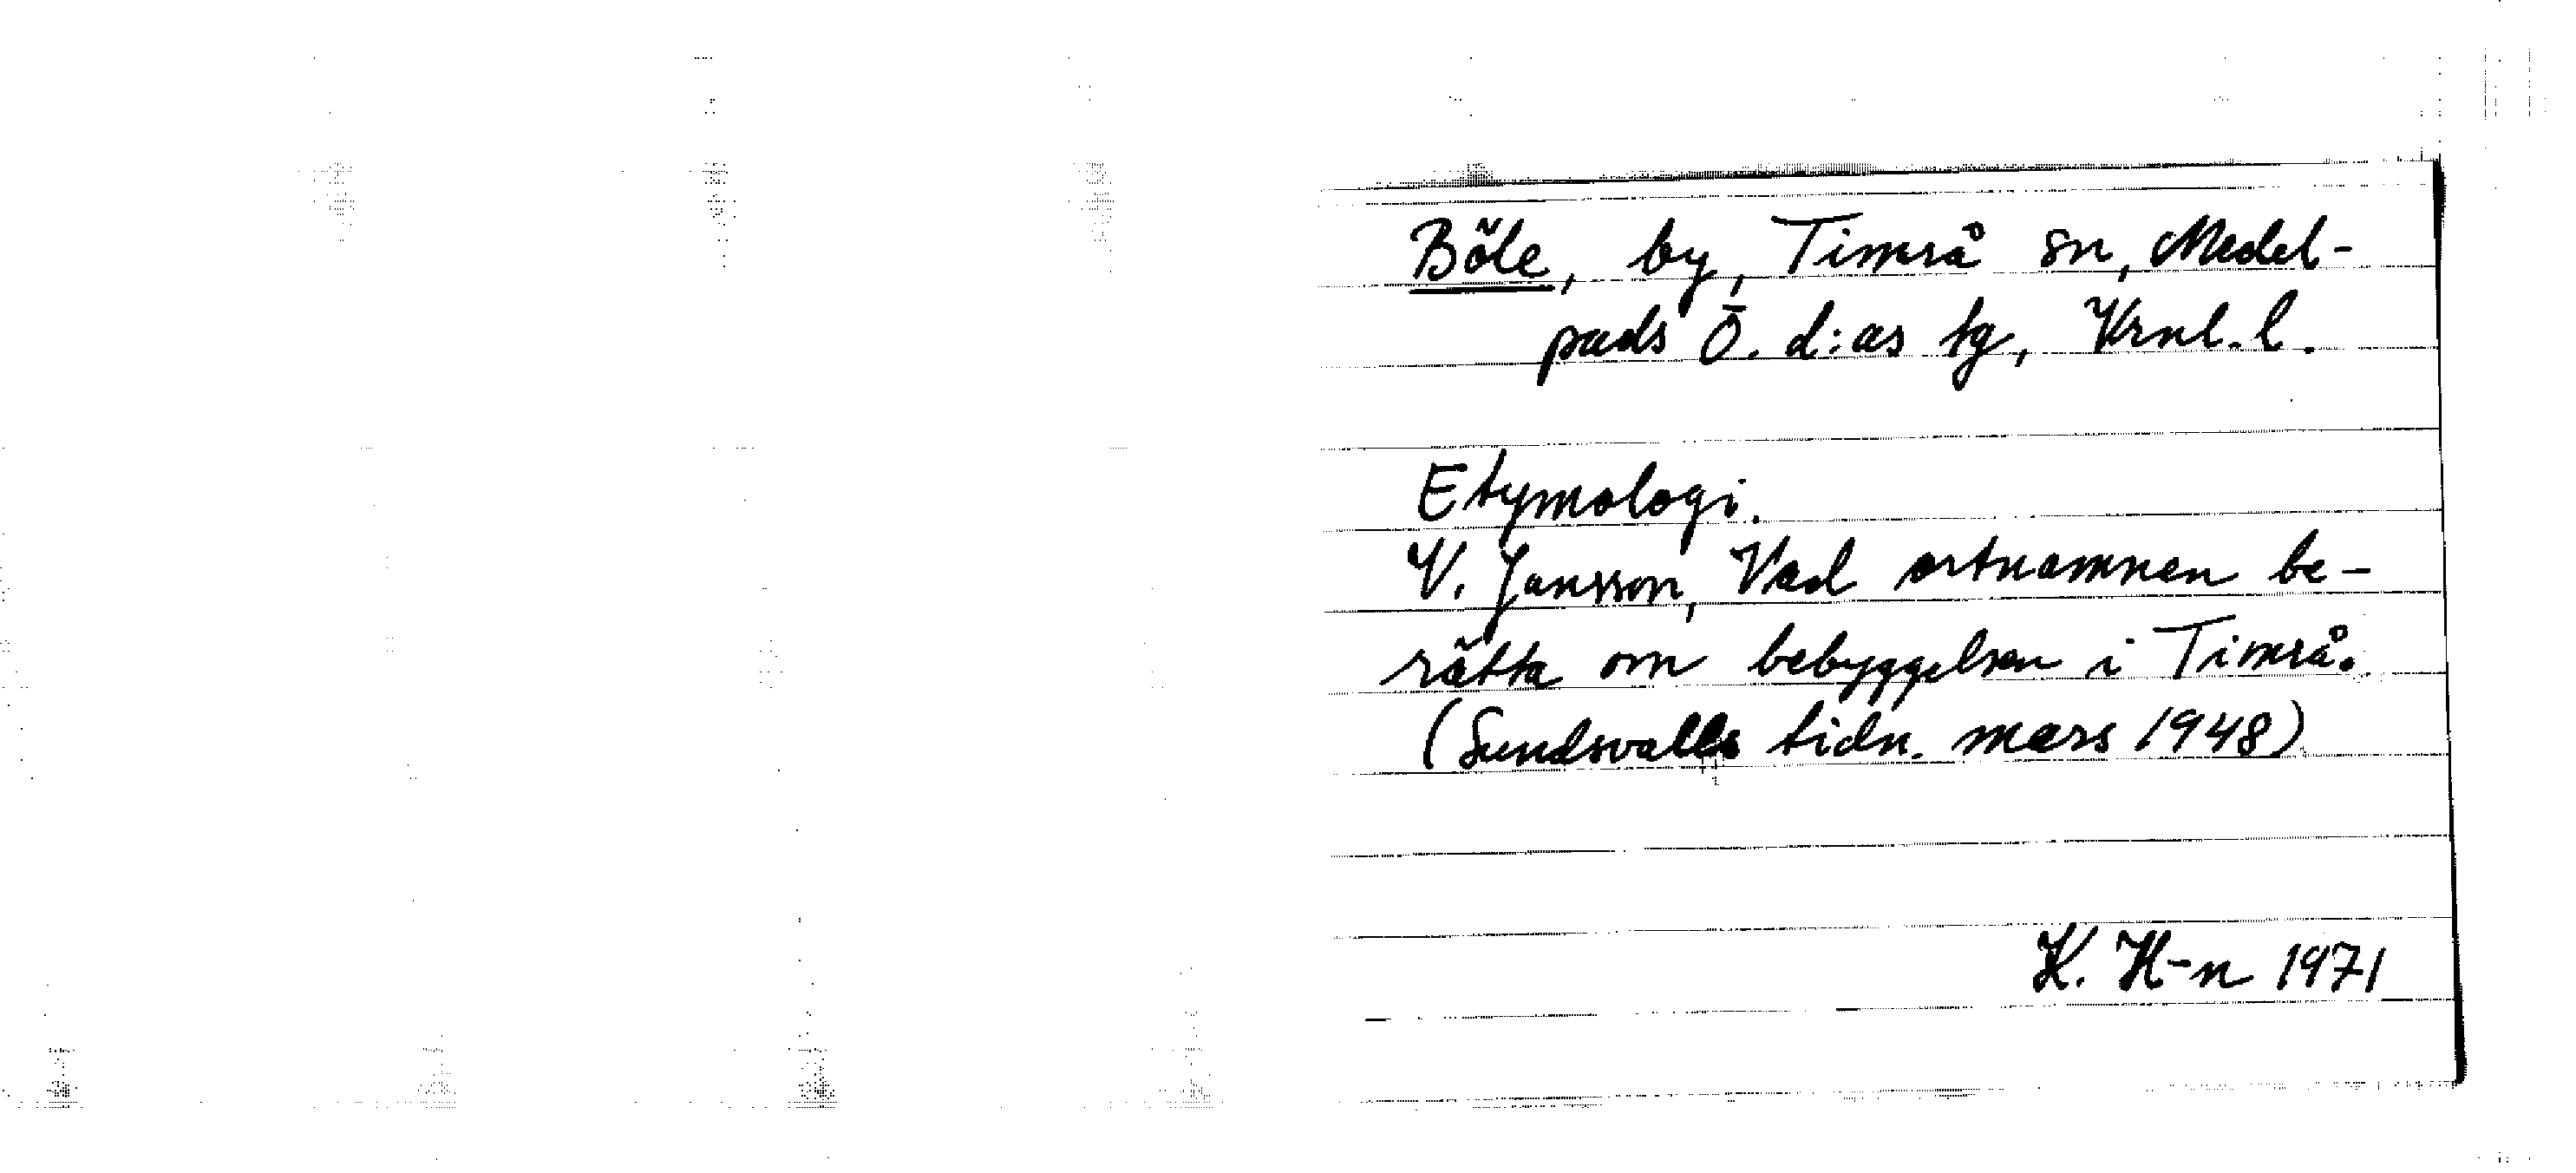 Böle, by, Timrå sn, Medel-
pads Ö. d:as tg, Vrnl. l.
Etymologi.
V. Jansson, Vad ortnamnen be-
rätta om bebyggelsen i Timrå.
(Sundsvalls tidn. mars 1948)
K. H-n 1971